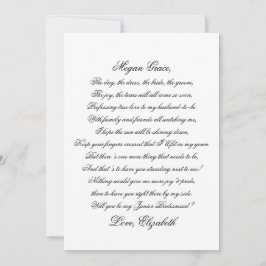 Megan Grace,
The day, the dress, the bride, the groom,
The joy, the tears will all come so soon,
Professing true love to my husband-to-be,
With family and friends all watching me,
I hope the sun will be shining down,
Keep your fingers crossed that I'll fit in my gown.
But there's one thing that needs to be,
And that's to have you standing next to me!
Nothing would give me more joy & pride,
than to have you right there by my side.
Will you be my Junior Bridesmaid?
Love, Elizabeth